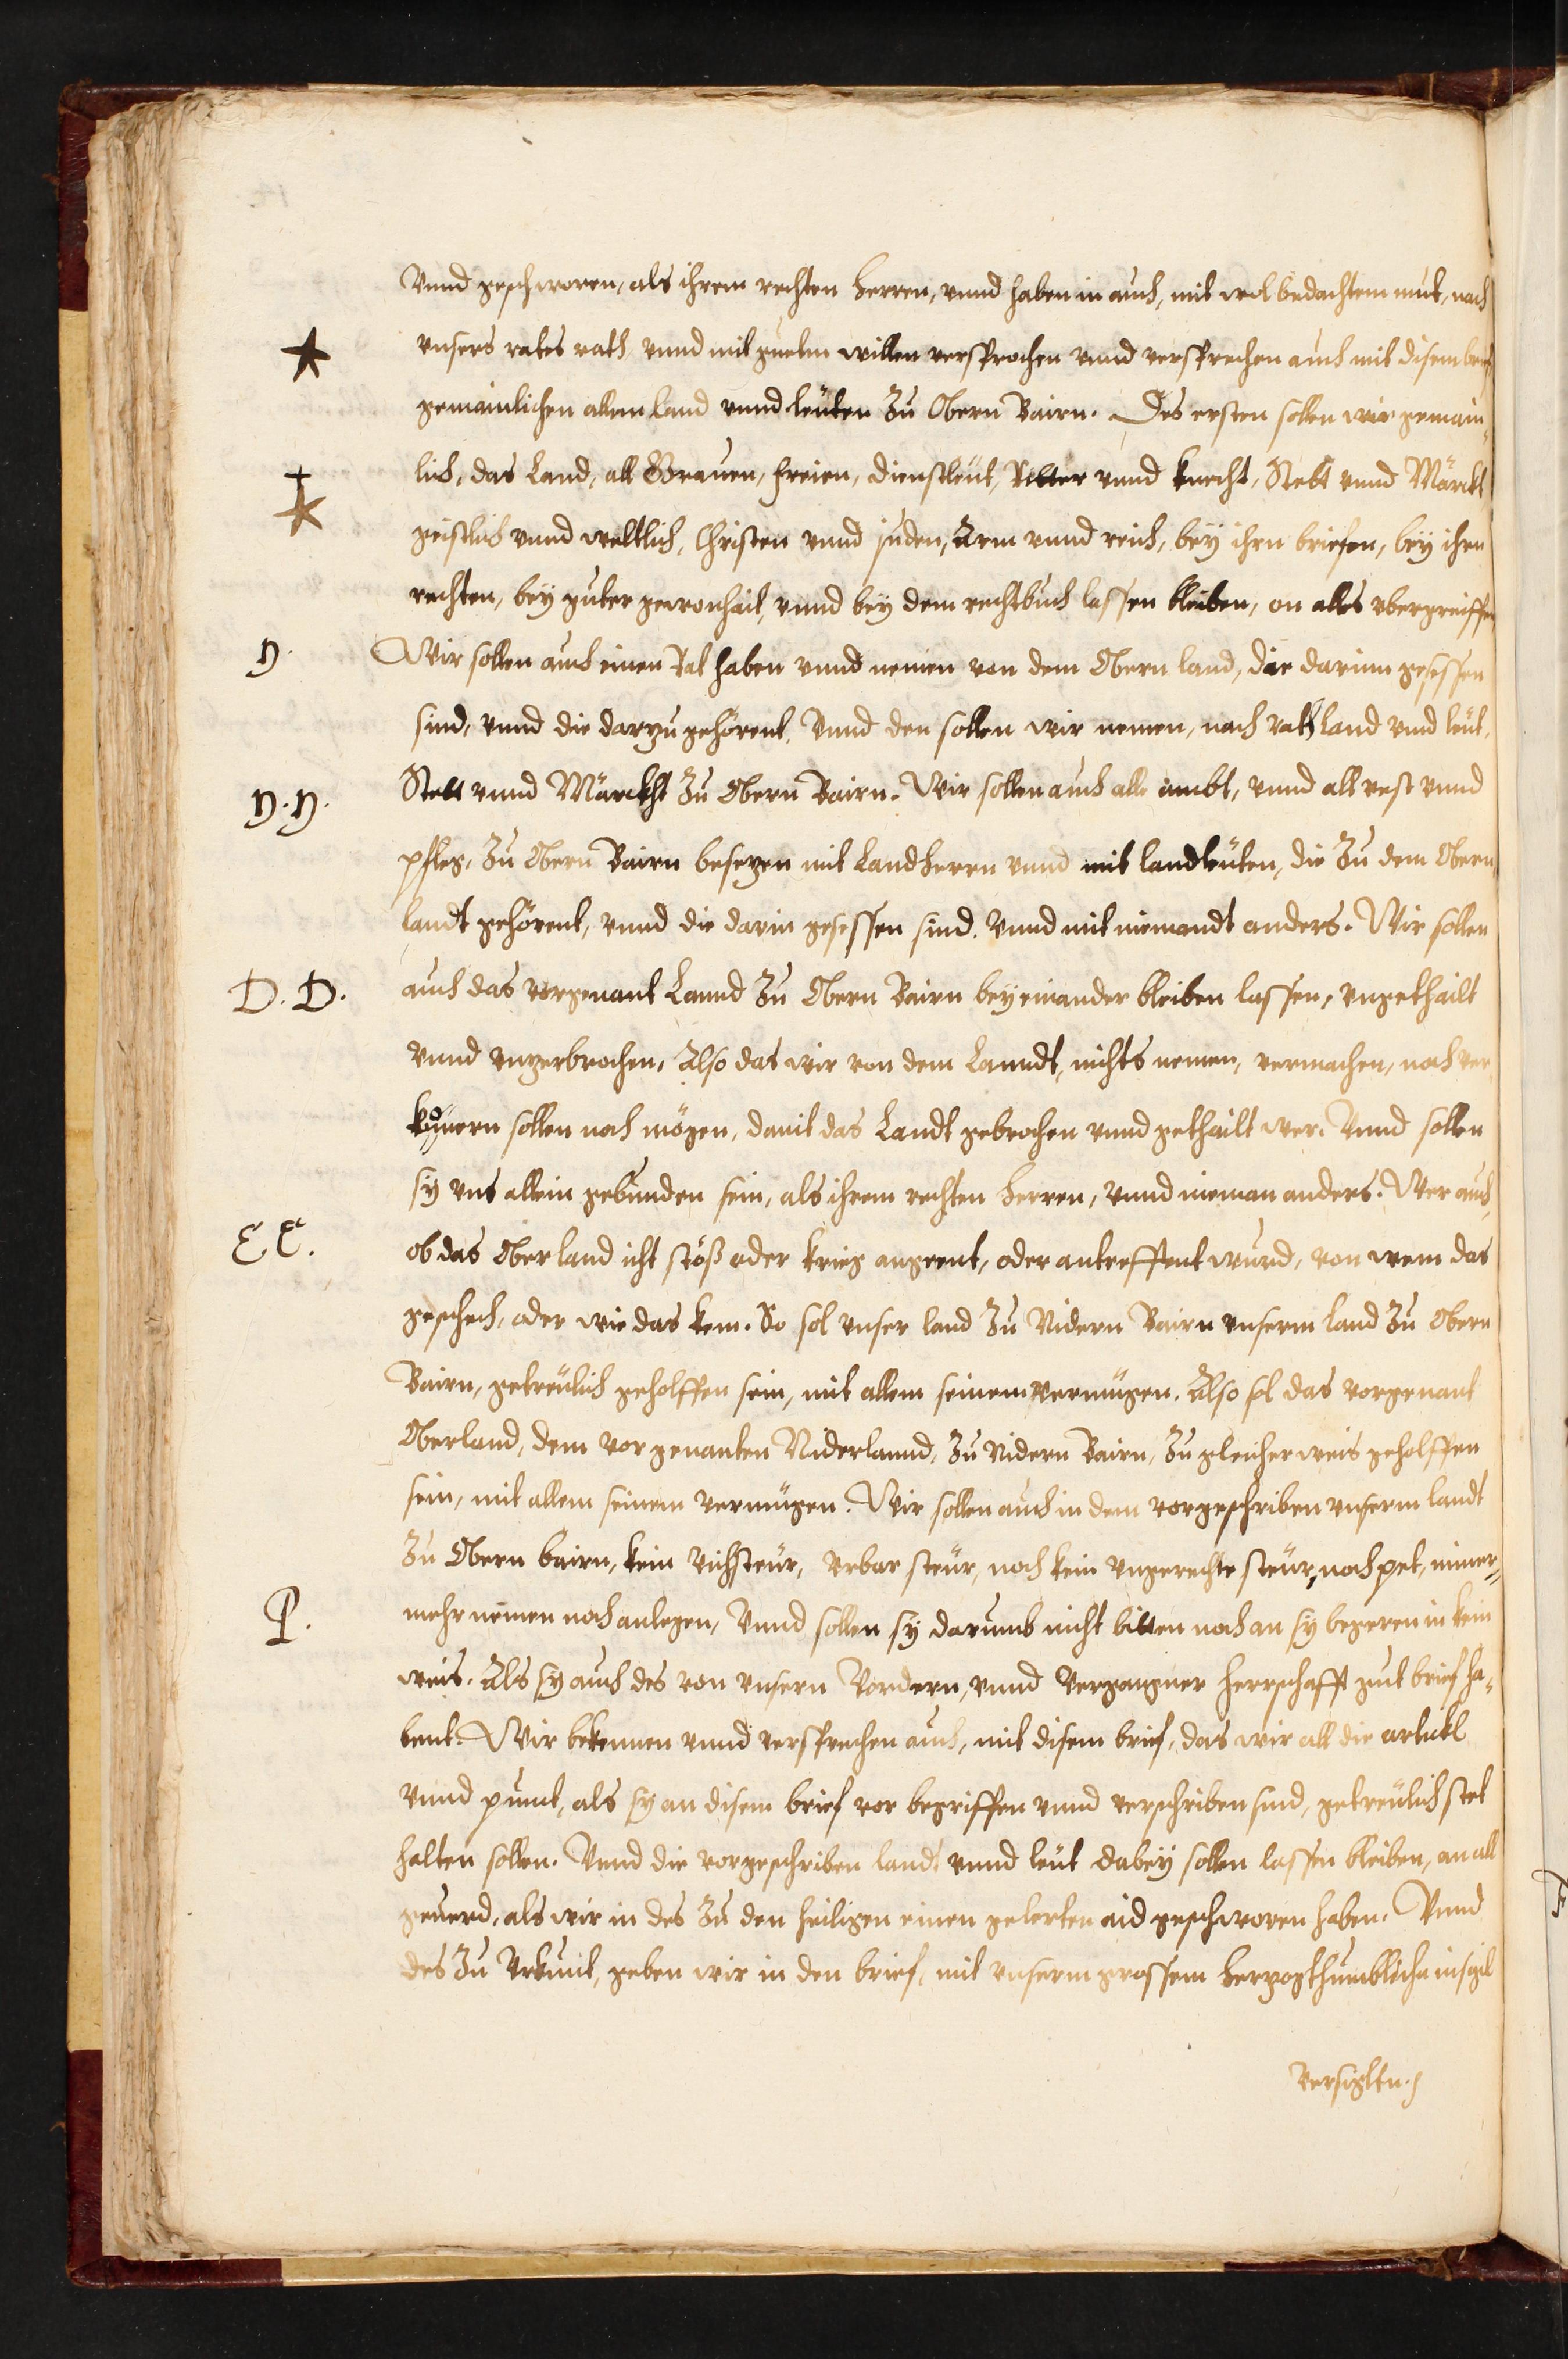 Vnnd geschworen, als ihrem rechten Herren, vnnd haben in auch, mit wol bedachtem mut, nach
★ vnsers rates rath, vnnd mit guetem willen versprochen vnnd versprechen auch mit disem brief
gemainlichen allem land vnnd leüten Zu Obern Bairn. Des ersten sollen wir gemain„
lich, das Land, all Grauen, freien, dienstleut, Ritter vnnd knecht, Stett vnnd Märckt
geistlich vnnd weltlich, Christen vnnd juden, Arm vnnd reich, bey ihrn briefen, bey ihrn
rechten, bey guter gewonhait, vnnd bey dem rechtbuch lassen bleiben, on alles vbergreiffen
n. Wir sollen auch einen Rat haben vnnd nemen von dem Obern land, die darinn gesessen
sind, vnnd die darzu gehörent, Vnnd den sollen wir nemen, nach rath land vnnd leut,
n. n. Stett vnnd Märckht Zu Obern Bairn. Wir sollen auch alle ambt, vnnd all vest vnnd
pfleg, Zu Obern Bairn besezen mit Landherrn vnnd mit landleüten, die Zu dem Obern
landt gehörent, vnnd die darin gesessen sind. Vnnd mit niemandt anders. Wir sollen
D. D. auch das vorgenant Lannd Zu Obern Bairn bey einander bleiben lassen, vngethailt
vnnd vnzerbrochen, Also das wir von dem Lanndt, nichts nemen, vermachen, noch ver
kümern sollen noch mögen, damit das Landt gebrochen vnnd gethailt wer. Vnnd sollen
sy vns allein gebunden sein, als ihrem rechten Herren, vnnd nieman anders. Wer auch,
E E. ob das Oberland icht stöß oder krieg angeent, oder antreffent wurd, von wem das
geschech, oder wie das kem. So sol vnser land Zu Nidern Bairn vnserm land Zu Obern
Bairn, getreülich geholffen sein, mit allem seinem vermügen. Also sol das vorgenant
Oberland, dem vorgenanten Niderlannd, Zu Nidern Bairn, Zu gleicher weis geholffen
sein, mit allem seinem vermügen. Wir sollen auch in dem vorgeschriben vnserm landt
Zu Obern bairn, kein Vichsteür, Vrbar steür, noch kein vngerechte steür, noch pet, nimer„
P. mehr nemen noch anlegen, Vnnd sollen sy darumb nicht bitten noch an sy begeren in kein
weis. Als sy auch des von vnsern Vordern, vnnd vergangner Herrschafft gut brief ha„
bent. Wir bekennen vnnd versprechen auch, mit disem brief, das wir all die artickl
vnnd punct, als sy an disem brief vor begriffen vnnd verschriben sind, getreülich stet
halten sollen. Vnnd die vorgeschriben landt vnnd leut dabey sollen lassen bleiben, an all
geuerd, als wir in des Zu den heiligen einen gelerten aid geschworen haben. Vnnd
des Zu Vrkunt, geben wir in den brief, mit vnserm grossem Herzogthumblichn insigl
Versigltn.